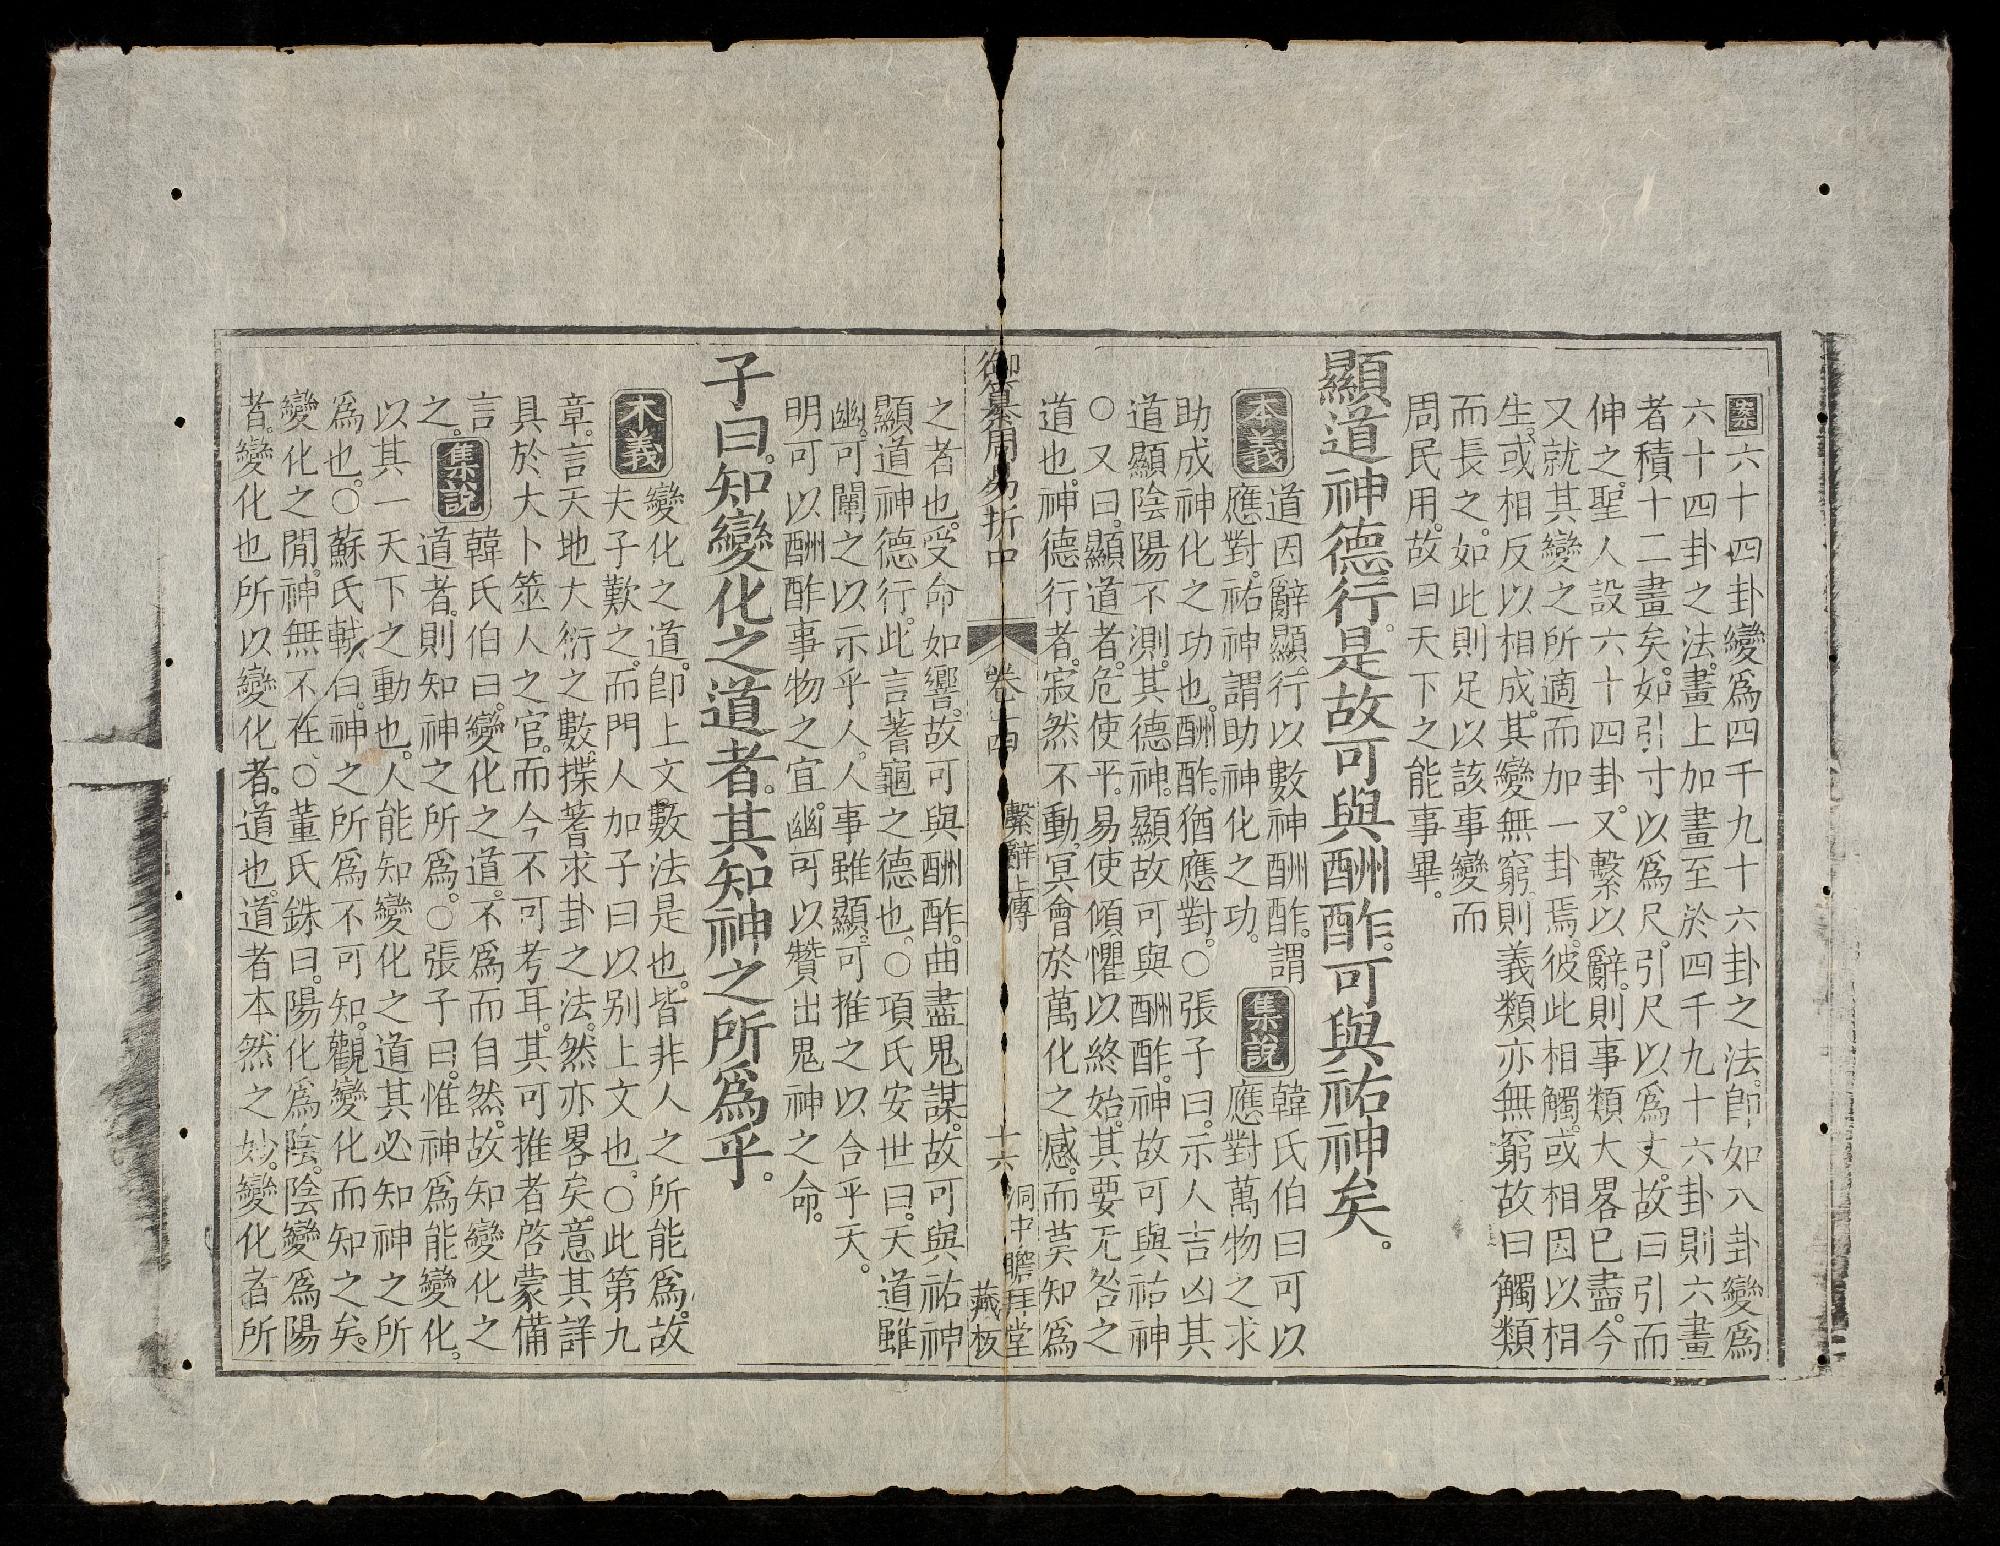 案六十四卦變爲四千九十六卦之法。即如八卦變爲
六十四卦之法。畫上加畫至於四千九十六卦則六畫
者積十二畫矣。如引寸以爲尺。引尺以爲丈。故曰引而
伸之。聖人設六十四卦。又繫以辭。則事類大畧已盡。今
又就其變之所適而加一卦焉。彼此相觸。或相因以相
生。或相反以相成。其變無窮。則義類亦無窮。故曰觸類
而長之。如此則足以該事變而
周民用。故曰天下之能事畢。
顯道神德行。是故可與酬酢。可與祐神矣。
本義
道因辭顯。行以數神。酬酢。謂
應對。祐神。謂助神化之功。
集說
韓氏伯曰可以
應對萬物之求
助成神化之功也。酬酢。猶應對。○張子曰。示人吉凶。其
道顯。陰陽不測。其德神。顯故可與酬酢。神故可與祐神
○又曰。顯道者。危使平。易使傾。懼以終始。其要无咎之
道也。神德行者。寂然不動。冥會於萬化之感。而莫知爲
御纂周易折中 卷十四 繫辭上傳 十六 洞中瞻拜堂
藏板
之者也。受命如響。故可與酬酢。曲盡鬼謀。故可與祐神
顯道神德行。此言蓍龜之德也。○項氏安世曰。天道雖
幽。可闡之以示乎人。人事雖顯。可推之以合乎天。
明可以酬酢事物之宜。幽可以贊出鬼神之命。
子曰。知變化之道者。其知神之所爲乎。
本義
變化之道。即上文數法是也。皆非人之所能爲。故
夫子歎之。而門人加子曰以别上文也。○此第九
章。言天地大衍之數。揲蓍求卦之法。然亦畧矣。意其詳
具於大卜筮人之官。而今不可考耳。其可推者啓蒙備
言
之。
集說
韓氏伯曰。變化之道。不爲而自然。故知變化之
道者。則知神之所爲。○張子曰。惟神爲能變化。
以其一天下之動也。人能知變化之道其必知神之所
爲也。○蘇氏軾曰。神之所爲不可知。觀變化而知之矣。
變化之閒。神無不在。○董氏銖曰。陽化爲陰。陰變爲陽
者。變化也所以變化者。道也。道者本然之妙。變化者所